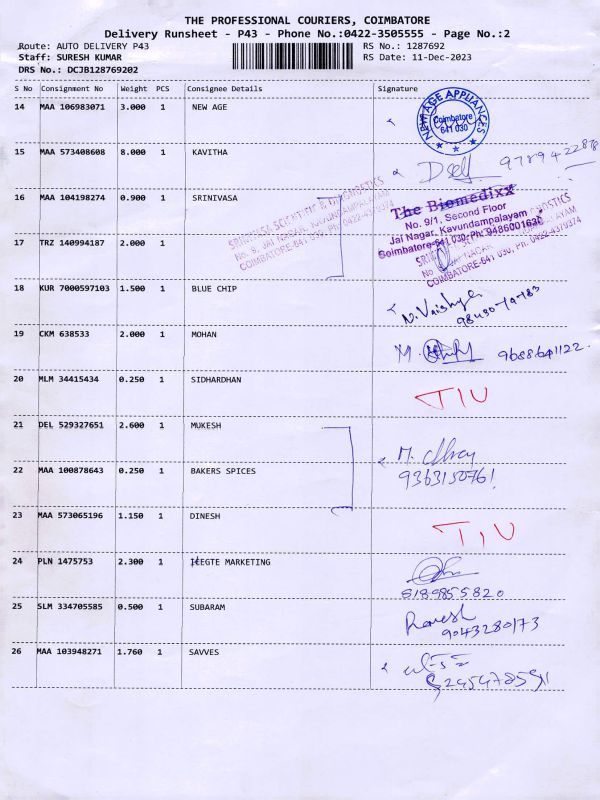 THE PROFESSIONAL COURIERS, COIMBATORE
Delivery Runsheet - P43 - Phone No.:0422-3505555 - Page No.:2
Route: AUTO DELIVERY P43 RS No.: 1287692
Staff: SURESH KUMAR RS Date: 11-Dec-2023
DRS No.: DCJB128769202
S No Consignment No Weight PCS Consignee Details Signature
14 MAA 106983071 3.000 1 NEW AGE
NEW AGE APPLIANCES
Coimbatore
641 030
15 MAA 573408608 8.000 1 KAVITHA
9789422878
16 MAA 104198274 0.900 1 SRINIVASA
SRINIVASA SCIENTIFIC & DIAGNOSTICS
No. 9, JAI NAGAR, KAVUNDAMPALAYAM
COIMBATORE-641 030, Ph: 0422-4379374
The Biomedixx
No. 9/1, Second Floor
Jai Nagar, Kavundampalayam
Coimbatore-641 030. Ph: 9486001630
COIMBATORE-641 030, Ph: 0422-4379374
17 TRZ 140994187 2.000 1
18 KUR 7000597103 1.500 1 BLUE CHIP
N. Vaishya
98430-79783
19 CKM 638533 2.000 1 MOHAN
9688641122
20 MLM 34415434 0.250 1 SIDHARDHAN
TIU
21 DEL 529327651 2.600 1 MUKESH
9363150761
22 MAA 100878643 0.250 1 BAKERS SPICES
23 MAA 573065196 1.150 1 DINESH
TIU
24 PLN 1475753 2.300 1 ICEGTE MARKETING
8189855820
25 SLM 334705585 0.500 1 SUBARAM
Ramesh
9043280173
26 MAA 103948271 1.760 1 SAVVES